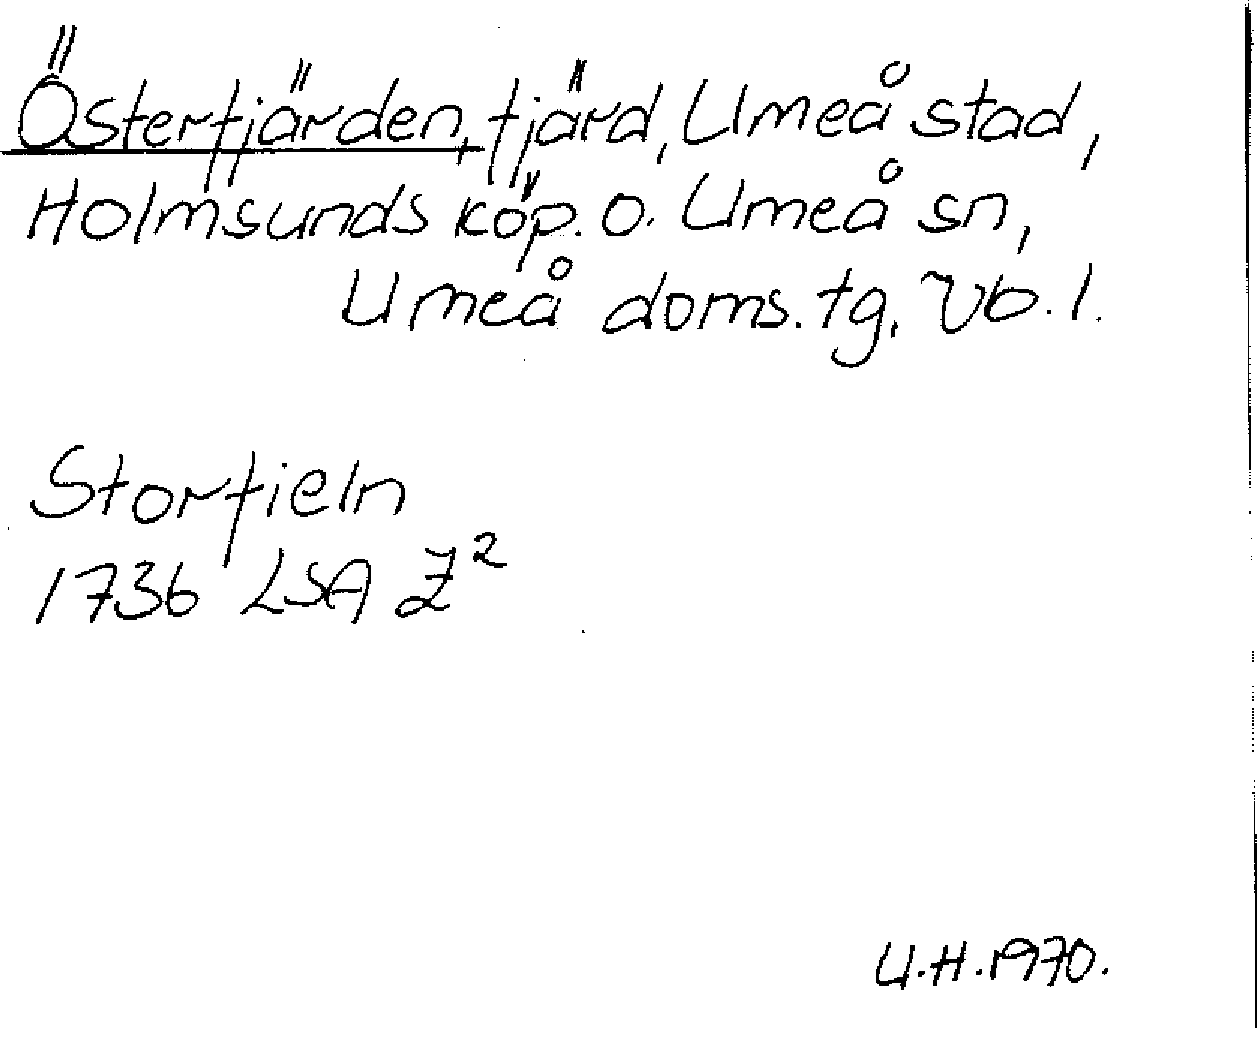 Österfjärden, fjärd, Umeå stad,
Holmsunds köp. o. Umeå sn,
Umeå doms. tg. Vb. l.
Storfieln
1736 LSA Z²
U.H. 1970.